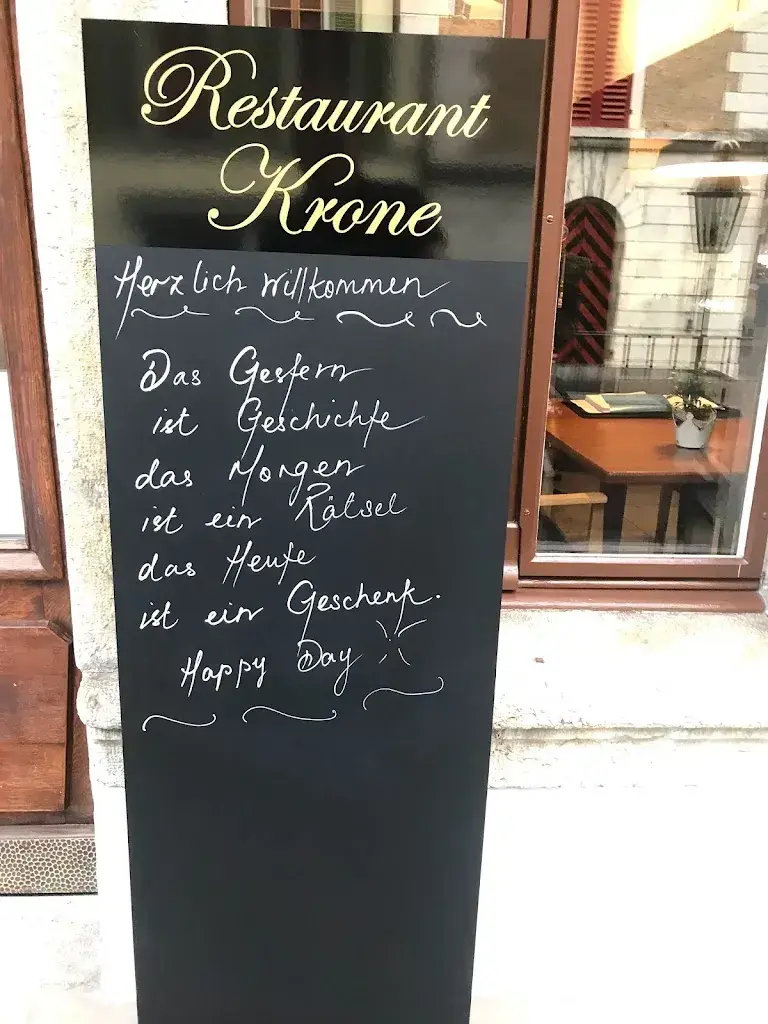 Restaurant
Krone
Herzlich Willkommen
Das Gestern
ist Geschichte
das Morgen
ist ein Rätsel
das Heute
ist ein Geschenk.
Happy Day